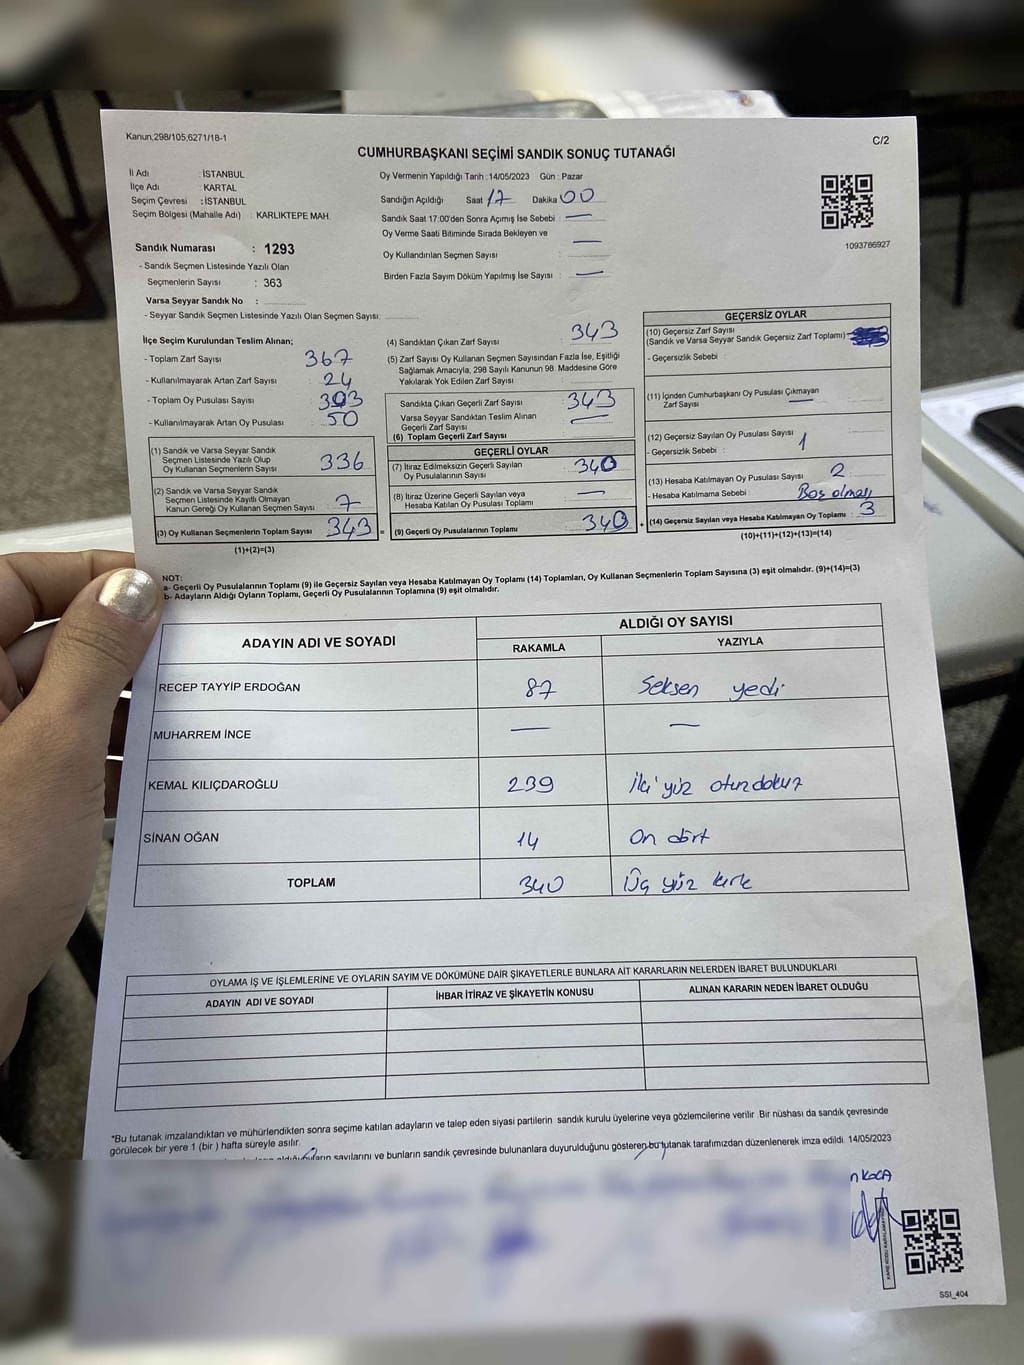 Kanun,298/105,6271/18-1
C/2
CUMHURBAŞKANI SEÇİMİ SANDIK SONUÇ TUTANAĞI
İl Adı : İSTANBUL
İlçe Adı : KARTAL
Seçim Çevresi : İSTANBUL
Seçim Bölgesi (Mahalle Adı) : KARLIKTEPE MAH.
Sandık Numarası : 1293
- Sandık Seçmen Listesinde Yazılı Olan
Seçmenlerin Sayısı : 363
Varsa Seyyar Sandık No :
- Seyyar Sandık Seçmen Listesinde Yazılı Olan Seçmen Sayısı:
Oy Vermenin Yapıldığı Tarih :14/05/2023 Gün : Pazar
Sandığın Açıldığı Saat 17 Dakika 00
Sandık Saat 17:00'den Sonra Açımış İse Sebebi : —
Oy Verme Saati Bitiminde Sırada Bekleyen ve
Oy Kullandırılan Seçmen Sayısı : —
Birden Fazla Sayım Döküm Yapılmış İse Sayısı : —
1093786927
İlçe Seçim Kurulundan Teslim Alınan;
- Toplam Zarf Sayısı 367
- Kullanılmayarak Artan Zarf Sayısı : 24
- Toplam Oy Pusulası Sayısı : 393
- Kullanılmayarak Artan Oy Pusulası : 50
(1) Sandık ve Varsa Seyyar Sandık
Seçmen Listesinde Yazılı Olup
Oy Kullanan Seçmenlerin Sayısı 336
(2) Sandık ve Varsa Seyyar Sandık
Seçmen Listesinde Kayıtlı Olmayan
Kanun Gereği Oy Kullanan Seçmen Sayısı : 7
(3) Oy Kullanan Seçmenlerin Toplam Sayısı 343 =
(1)+(2)=(3)
(4) Sandıktan Çıkan Zarf Sayısı : 343
(5) Zarf Sayısı Oy Kullanan Seçmen Sayısından Fazla İse, Eşitliği
Sağlamak Amacıyla, 298 Sayılı Kanunun 98. Maddesine Göre
Yakılarak Yok Edilen Zarf Sayısı :
Sandıkta Çıkan Geçerli Zarf Sayısı : 343
Varsa Seyyar Sandıktan Teslim Alınan
Geçerli Zarf Sayısı : —
(6) Toplam Geçerli Zarf Sayısı :
GEÇERLİ OYLAR
(7) İtiraz Edilmeksizin Geçerli Sayılan
Oy Pusulalarının Sayısı : 340
(8) İtiraz Üzerine Geçerli Sayılan veya
Hesaba Katılan Oy Pusulası Toplamı : —
(9) Geçerli Oy Pusulalarının Toplamı : 340 +
GEÇERSİZ OYLAR
(10) Geçersiz Zarf Sayısı
(Sandık ve Varsa Seyyar Sandık Geçersiz Zarf Toplamı)
- Geçersizlik Sebebi :
(11) İçinden Cumhurbaşkanı Oy Pusulası Çıkmayan
Zarf Sayısı : —
(12) Geçersiz Sayılan Oy Pusulası Sayısı : 1
- Geçersizlik Sebebi :
(13) Hesaba Katılmayan Oy Pusulası Sayısı : 2
- Hesaba Katılmama Sebebi : Boş olması
(14) Geçersiz Sayılan veya Hesaba Katılmayan Oy Toplamı : 3
(10)+(11)+(12)+(13)=(14)
NOT:
a- Geçerli Oy Pusulalarının Toplamı (9) ile Geçersiz Sayılan veya Hesaba Katılmayan Oy Toplamı (14) Toplamları, Oy Kullanan Seçmenlerin Toplam Sayısına (3) eşit olmalıdır. (9)+(14)=(3)
b- Adayların Aldığı Oyların Toplamı, Geçerli Oy Pusulalarının Toplamına (9) eşit olmalıdır.
ADAYIN ADI VE SOYADI ALDIĞI OY SAYISI
RAKAMLA YAZIYLA
RECEP TAYYİP ERDOĞAN 87 Seksen yedi
MUHARREM İNCE — —
KEMAL KILIÇDAROĞLU 239 İki yüz otuz dokuz
SİNAN OĞAN 14 On dört
TOPLAM 340 Üç yüz kırk
OYLAMA İŞ VE İŞLEMLERİNE VE OYLARIN SAYIM VE DÖKÜMÜNE DAİR ŞİKAYETLERLE BUNLARA AİT KARARLARIN NELERDEN İBARET BULUNDUKLARI
ADAYIN ADI VE SOYADI İHBAR İTİRAZ VE ŞİKAYETİN KONUSU ALINAN KARARIN NEDEN İBARET OLDUĞU
*Bu tutanak imzalandıktan ve mühürlendikten sonra seçime katılan adayların ve talep eden siyasi partilerin sandık kurulu üyelerine veya gözlemcilerine verilir. Bir nüshası da sandık çevresinde
görülecek bir yere 1 (bir) hafta süreyle asılır.
sayılarını ve bunların sandık çevresinde bulunanlara duyurulduğunu gösteren bu tutanak tarafımızdan düzenlenerek imza edildi. 14/05/2023
n KOCA
SSI_404